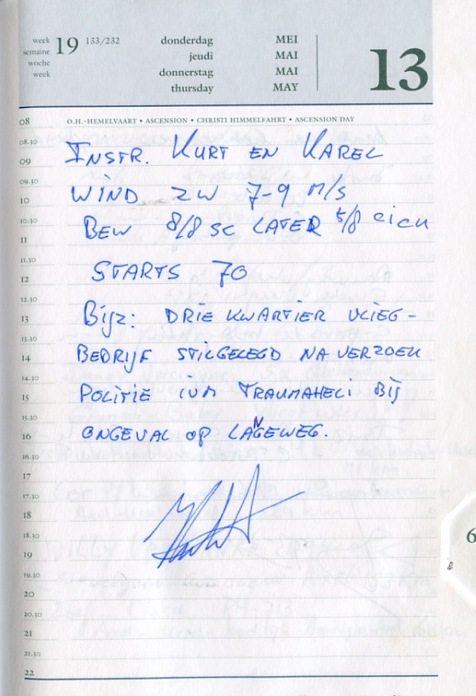 week
semaine
woche
week
19 133/232
donderdag MEI
jeudi MAI
donnerstag MAI
thursday MAY
13
08 O.H.-HEMELVAART • ASCENSION • CHRISTI HIMMELFAHRT • ASCENSION DAY
08.30
INSTR. KURT EN KAREL
09
09.30
WIND ZW 7-9 M/S
10
10.30
BEW 8/8 SC LATER 5/8 CICU
11
11.30
STARTS 70
12
12.30
BIJZ: DRIE KWARTIER VLIEG-
13
13.30
BEDRIJF STILGELEGD NA VERZOEK
14
14.30
POLITIE IVM TRAUMAHELI BIJ
15
15.30
ONGEVAL OP LANGEWEG.
16
16.30
17
17.30
18
18.30
19
19.30
20
20.30
21
21.30
22
6